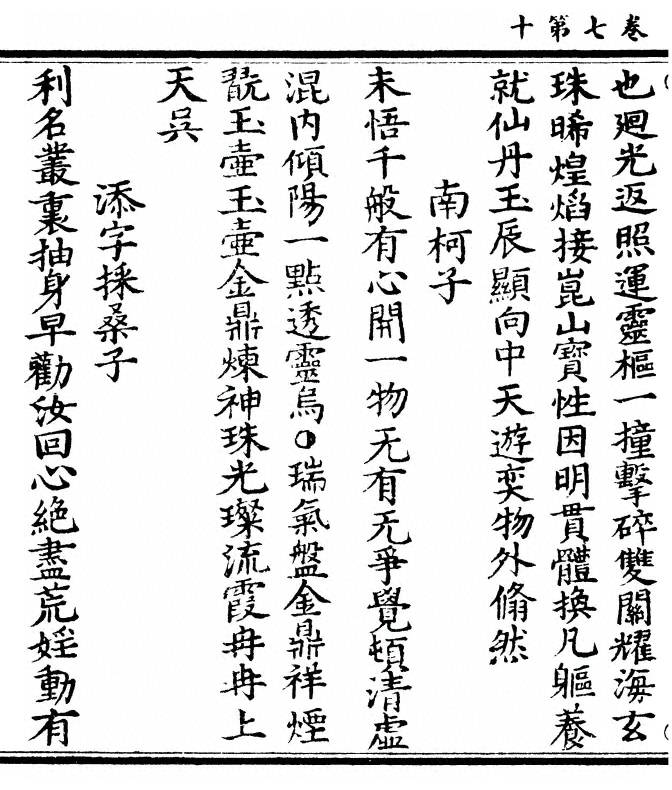 卷七第十
也廻光返照運靈樞一撞擊碎雙關耀海玄
珠晞煌焰接崑山寶性因明貫體換凡軀養
就仙丹玉辰顯向中天遊奕物外翛然
南柯子
未悟千般有心開一物无有无爭覺頓清虛
混內傾陽一點透靈烏○瑞氣盤金鼎祥煙
翫玉壺玉壺金鼎煉神珠光璨流霞冉冉上
天吳
添字採桑子
利名叢裏抽身早勸汝回心絕盡荒婬動有